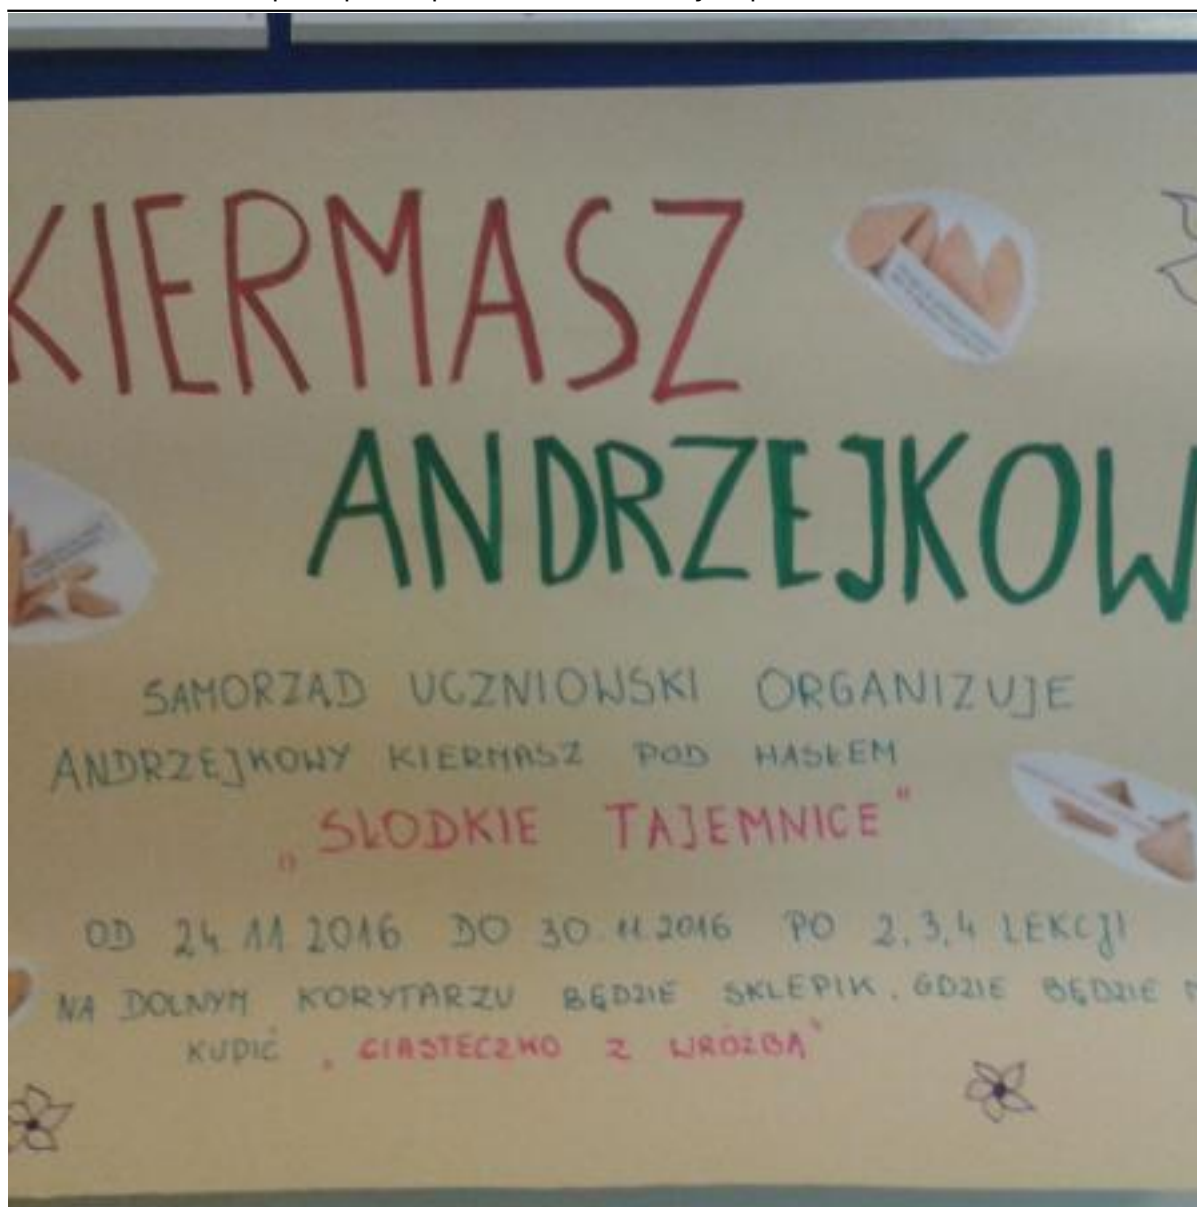 KIERMASZ
ANDRZEJKOW
SAMORZĄD UCZNIOWSKI ORGANIZUJE
ANDRZEJKOWY KIERMASZ POD HASŁEM
„SŁODKIE TAJEMNICE"
OD 24 11 2016 DO 30.11.2016 PO 2,3,4 LEKCJI
NA DOLNYM KORYTARZU BĘDZIE SKLEPIK, GDZIE BĘDZIE
KUPIĆ „CIASTECZKO Z WRÓŻBĄ"